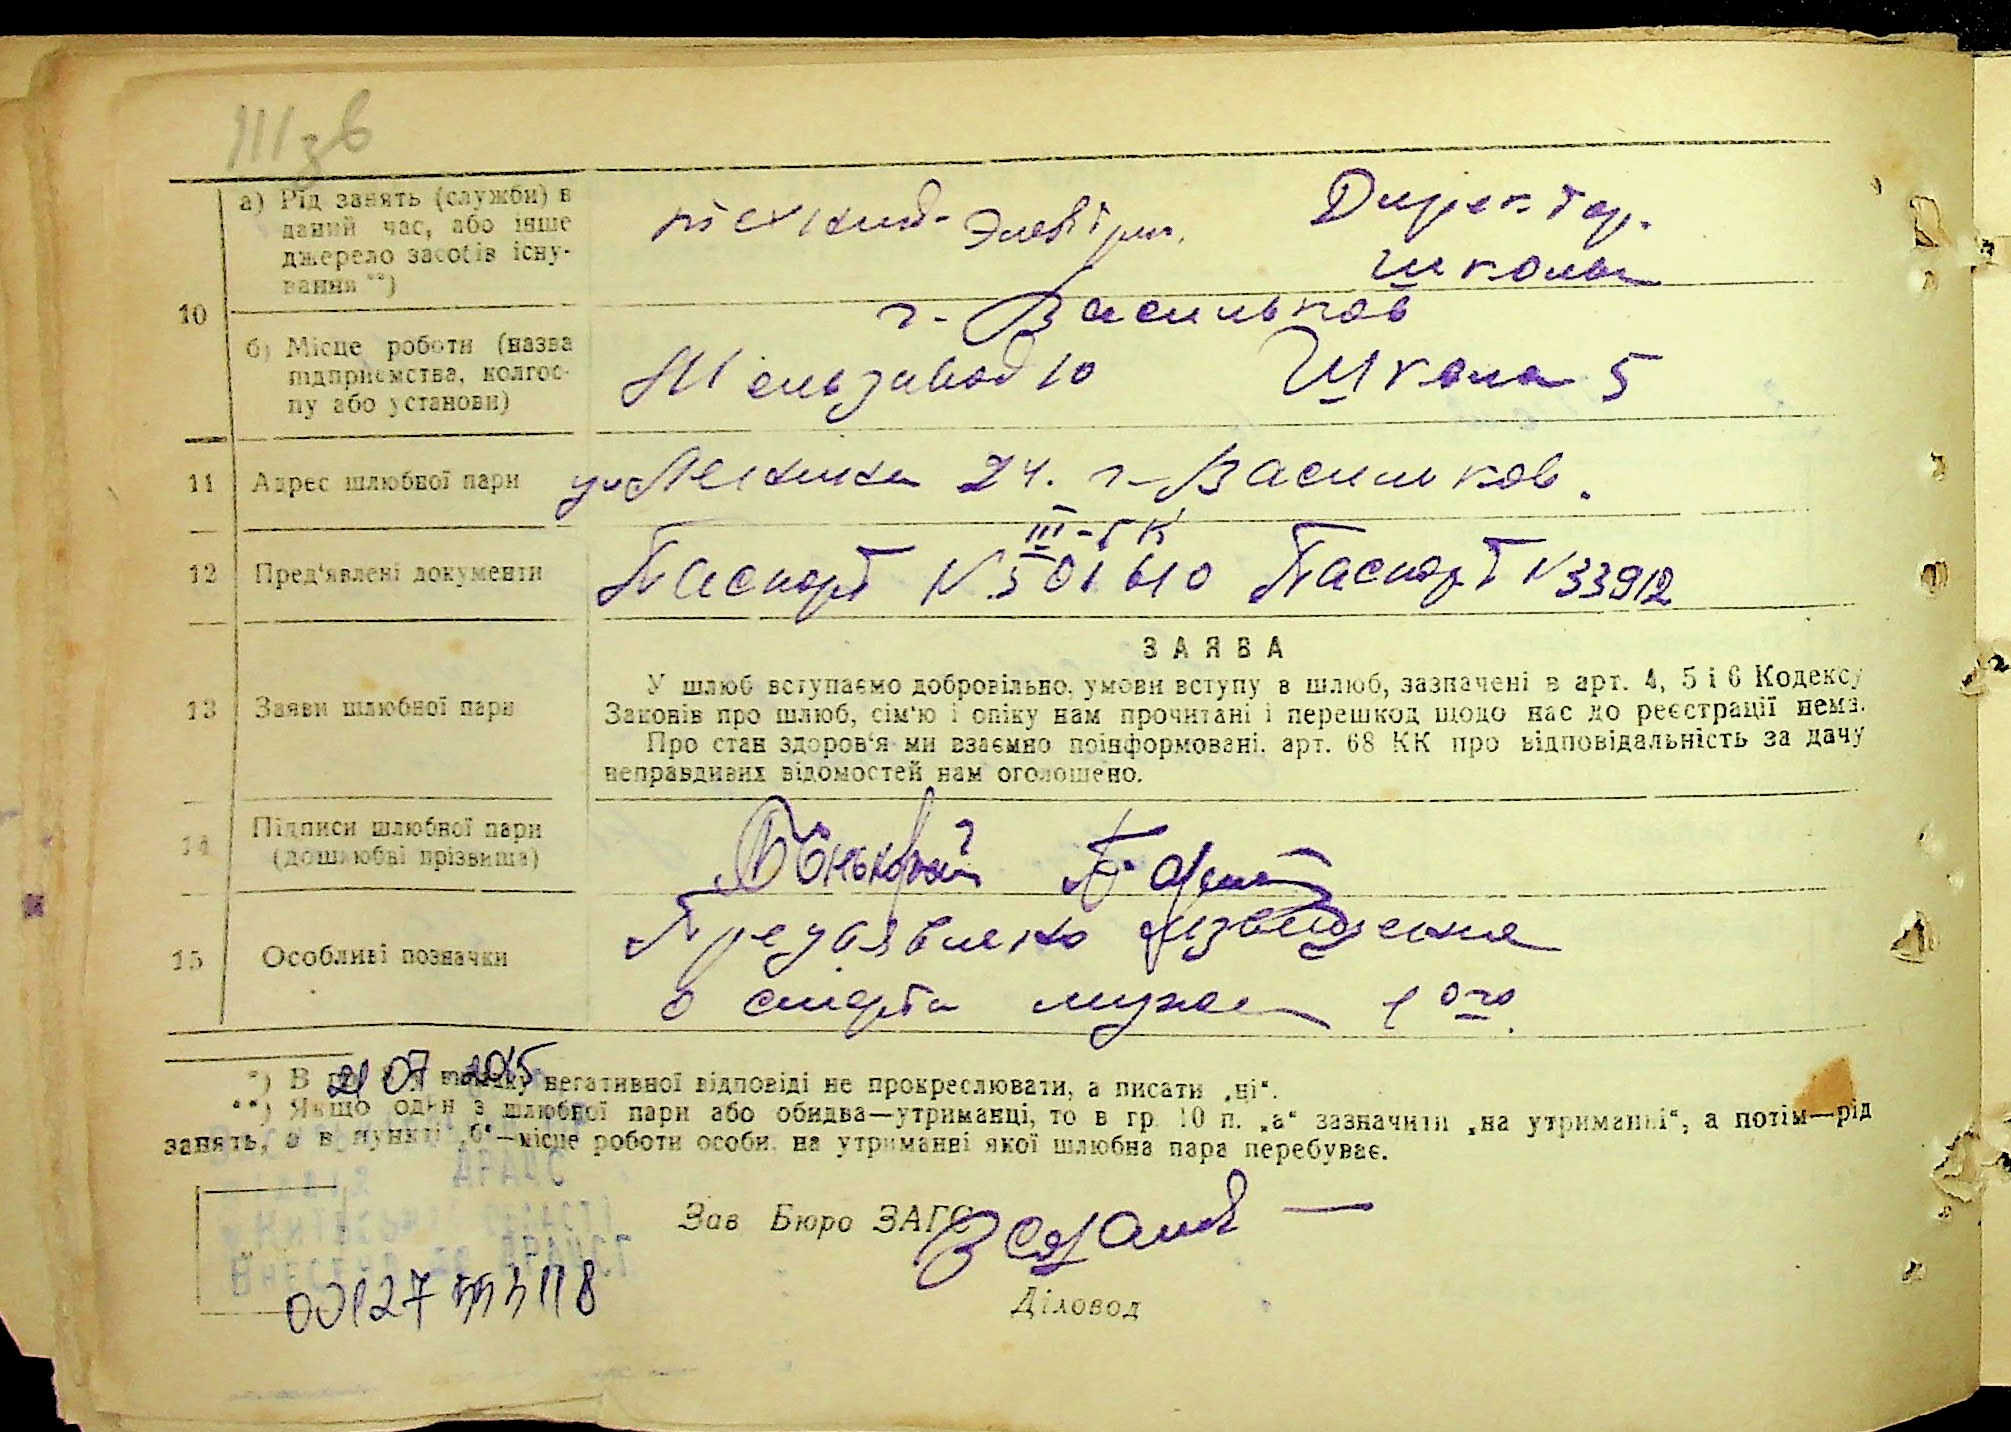 а) Рід занять (служби) в
даний час, або інше
джерело засобів існу-
вання **)
техник-электри.
Директор.
школы
10
г. Васильков
б) Місце роботи (назва
підприємства, колгос-
пу або установи)
Мельзавод 10
Школа 5
11 Адрес шлюбної пари
ул Ленина 24. г. Васильков.
III-ГК
12 Пред'явлені документи
Паспорт N 501610 Паспорт N 33912
ЗАЯВА
13 Заяви шлюбної пари
У шлюб вступаємо добровільно, умови вступу в шлюб, зазначені в арт. 4, 5 і 6 Кодексу
Законів про шлюб, сім'ю і опіку нам прочитані і перешкод щодо нас до реєстрації нема.
Про стан здоров'я ми взаємно поінформовані. арт. 68 КК про відповідальність за дачу
неправдивих відомостей нам оголошено.
14 Підписи шлюбної пари
(дошлюбні прізвища)
15 Особливі позначки
Предъявлено извещение
о смерти мужа 1ого.
21 07 2015
*) В негативної відповіді не прокреслювати, а писати „ні“.
**) Якщо один з шлюбної пари або обидва—утриманці, то в гр. 10 п. „а“ зазначити „на утриманні“, а потім—рід
занять, а в пункті „б“—місце роботи особи, на утриманні якої шлюбна пара перебуває.
Зав Бюро ЗАГС
Діловод